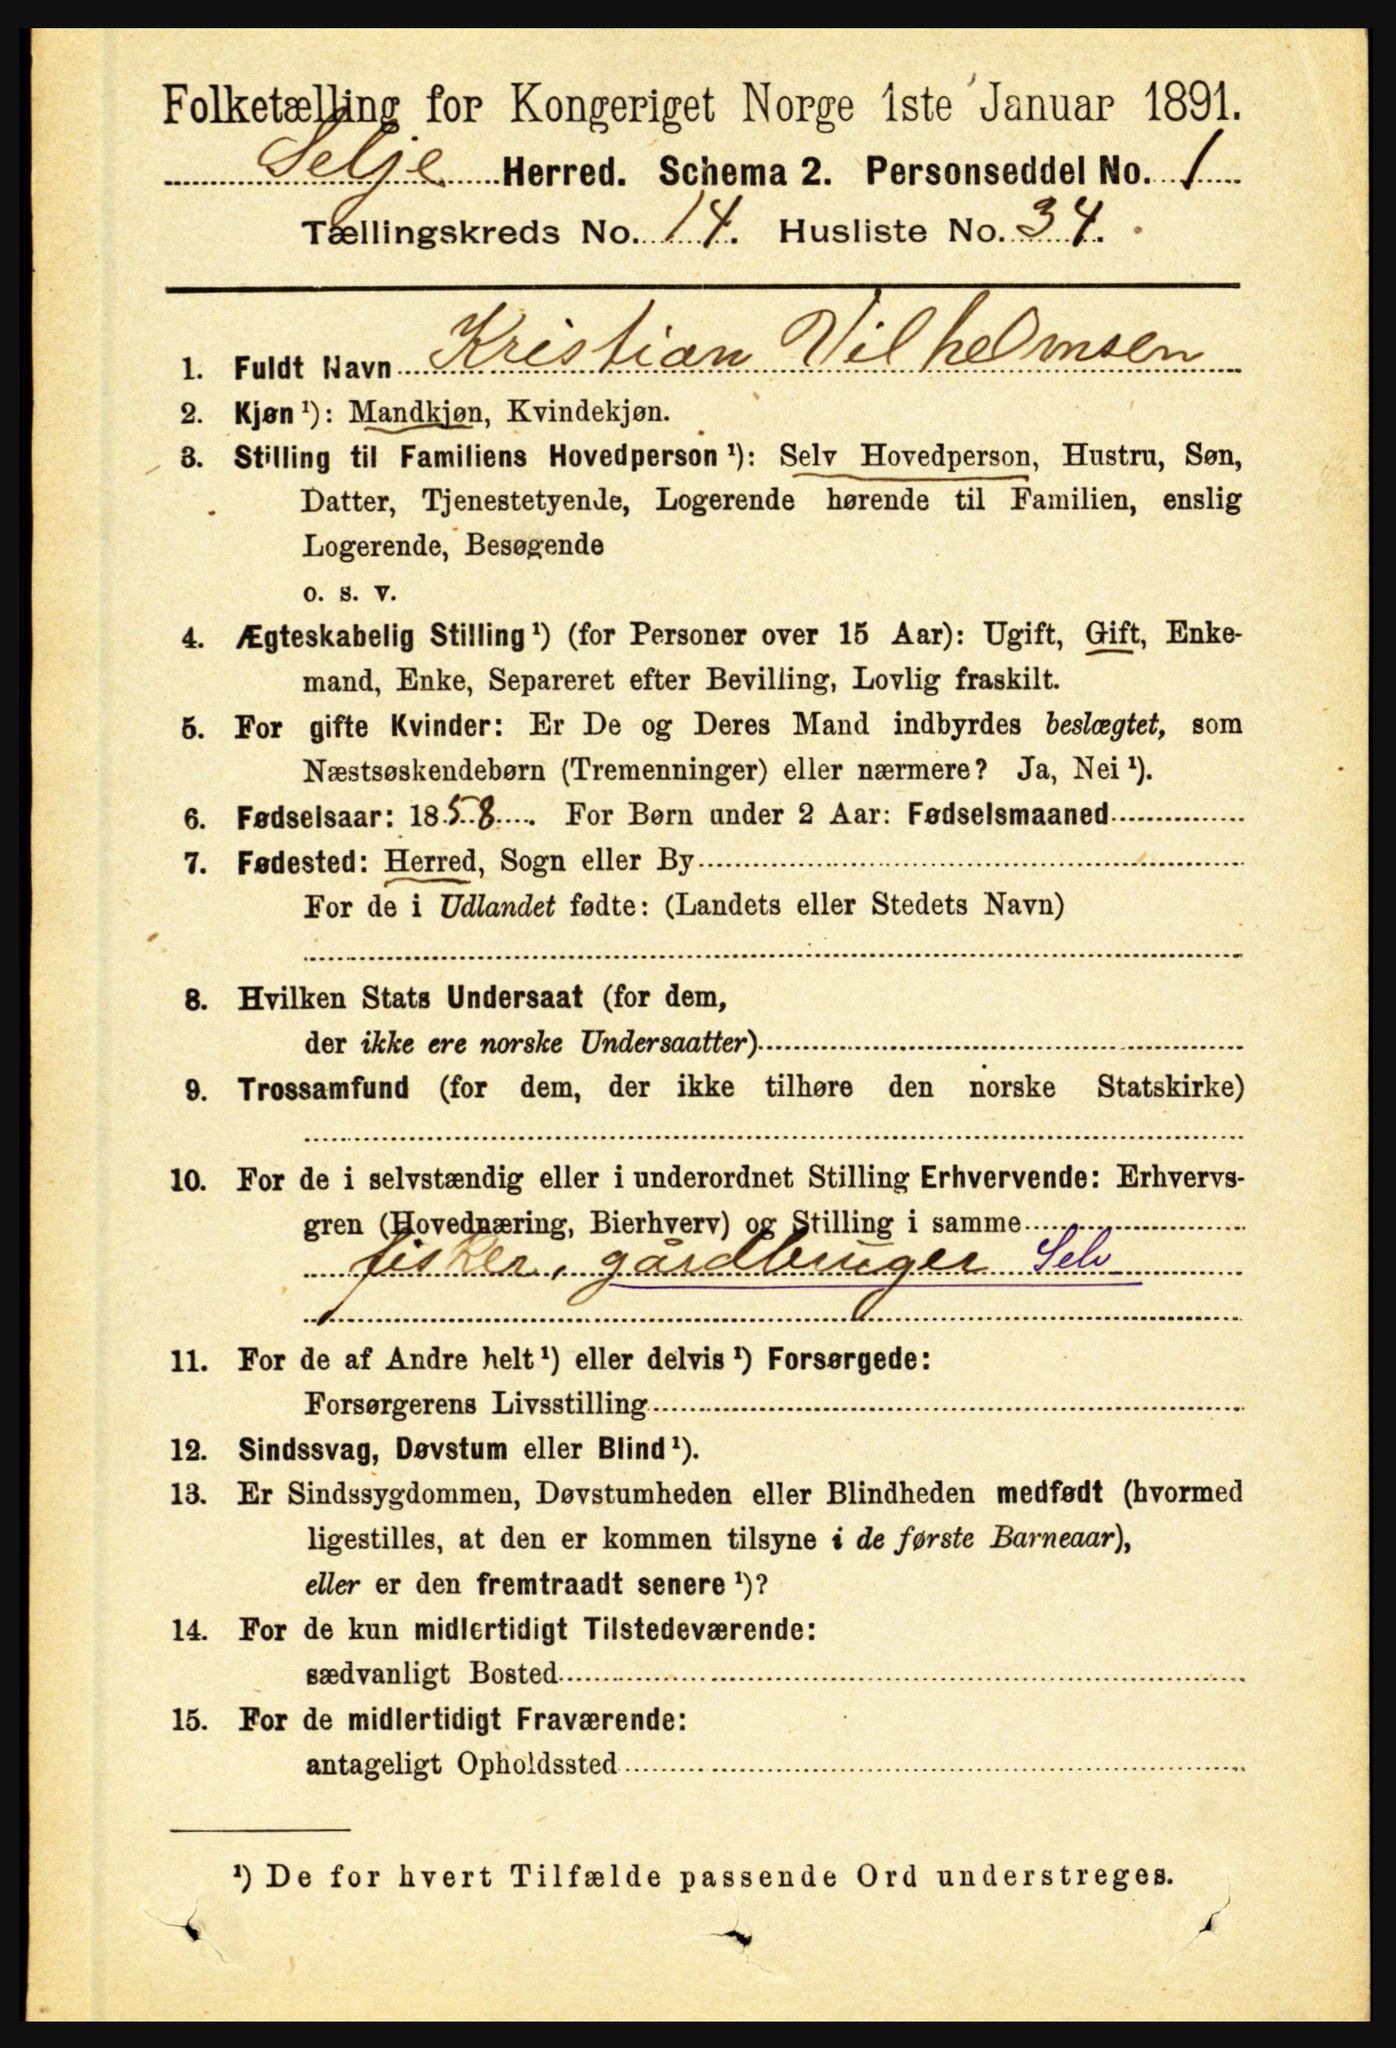 Folketælling for Kongeriget Norge 1ste Januar 1891.
Selje Herred. Schema 2. Personseddel No. 1
Tællingskreds No. 14. Husliste No. 34.
1. Fuldt Navn Kristian Vilhelmsen
2. Kjøn ¹): Mandkjøn, Kvindekjøn.
3. Stilling til Familiens Hovedperson ¹): Selv Hovedperson, Hustru, Søn,
Datter, Tjenestetyende, Logerende hørende til Familien, enslig
Logerende, Besøgende
o. s. v.
4. Ægteskabelig Stilling ¹) (for Personer over 15 Aar): Ugift, Gift, Enke-
mand, Enke, Separeret efter Bevilling, Lovlig fraskilt.
5. For gifte Kvinder: Er De og Deres Mand indbyrdes beslægtet, som
Næstsøskendebørn (Tremenninger) eller nærmere? Ja, Nei ¹).
6. Fødselsaar: 1858. For Børn under 2 Aar: Fødselsmaaned
7. Fødested: Herred, Sogn eller By
For de i Udlandet fødte: (Landets eller Stedets Navn)
8. Hvilken Stats Undersaat (for dem,
der ikke ere norske Undersaatter)
9. Trossamfund (for dem, der ikke tilhøre den norske Statskirke)
10. For de i selvstændig eller i underordnet Stilling Erhvervende: Erhvervs-
gren (Hovednæring, Bierhverv) og Stilling i samme
fisker, gårdbruger Selv
11. For de af Andre helt ¹) eller delvis ¹) Forsørgede:
Forsørgerens Livsstilling
12. Sindssvag, Døvstum eller Blind ¹).
13. Er Sindssygdommen, Døvstumheden eller Blindheden medfødt (hvormed
ligestilles, at den er kommen tilsyne i de første Barneaar),
eller er den fremtraadt senere ¹)?
14. For de kun midlertidigt Tilstedeværende:
sædvanligt Bosted
15. For de midlertidigt Fraværende:
antageligt Opholdssted
¹) De for hvert Tilfælde passende Ord understreges.